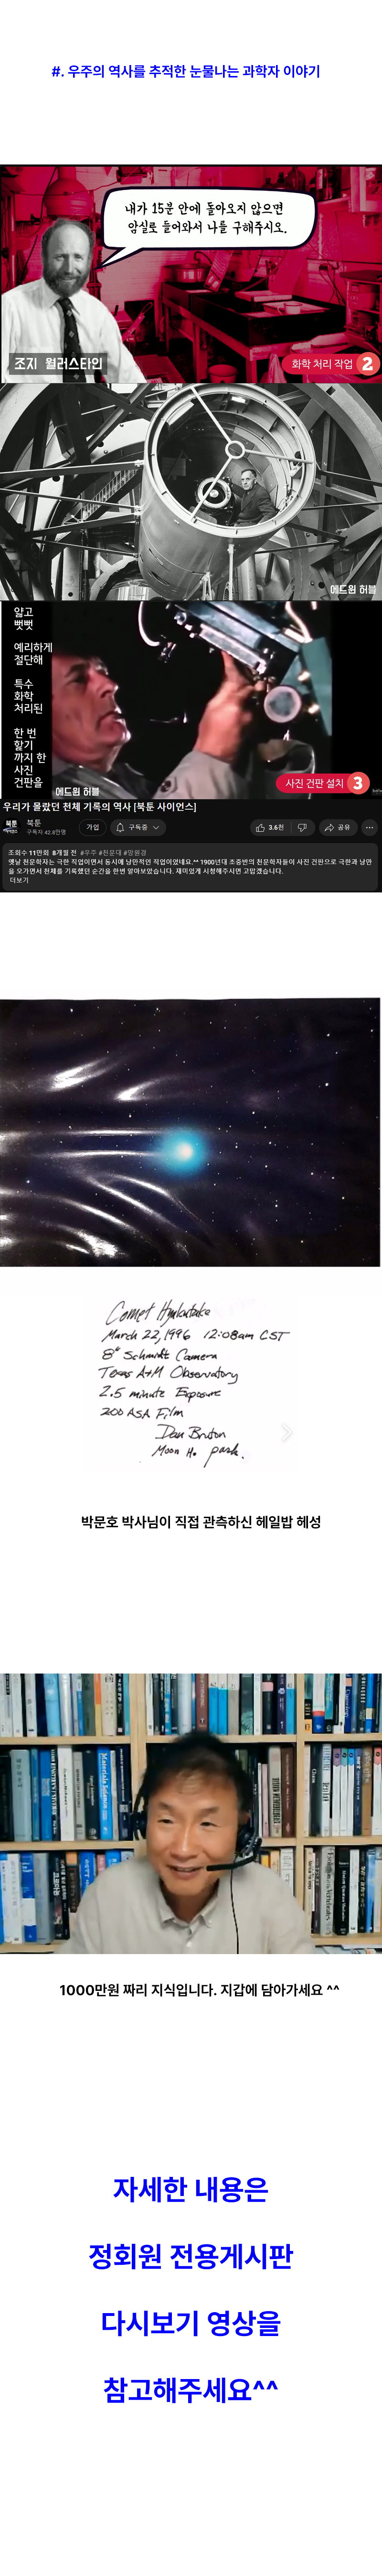 #. 우주의 역사를 추적한 눈물나는 과학자 이야기
내가 15분 안에 돌아오지 않으면
암실로 들어와서 나를 구해주시오.
조지 윌러스타인
화학 처리 작업 2
에드윈 허블
얇고
뻣뻣
예리하게
절단해
특수
화학
처리된
한 번
핥기
까지 한
사진
건판을
에드윈 허블
사진 건판 설치 3
우리가 몰랐던 천체 기록의 역사 [북툰 사이언스]
북툰
북툰
구독자 42.8만명
가입
구독중
3.6천
공유
조회수 11만회 8개월 전 #우주 #천문대 #망원경
옛날 천문학자는 극한 직업이면서 동시에 낭만적인 직업이었네요.^^ 1900년대 초중반의 천문학자들이 사진 건판으로 극한과 낭만
을 오가면서 천체를 기록했던 순간을 한번 알아보았습니다. 재미있게 시청해주시면 고맙겠습니다.
더보기
Comet Hyakutake
March 22, 1996 12:08am CST
8" Schmidt Camera
Texas A&M Observatory
2.5 minute Exposure
200 ASA Film
Dan Bruton
Moon Ho. park.
박문호 박사님이 직접 관측하신 헤일밥 헤성
1000만원 짜리 지식입니다. 지갑에 담아가세요 ^^
자세한 내용은
정회원 전용게시판
다시보기 영상을
참고해주세요^^